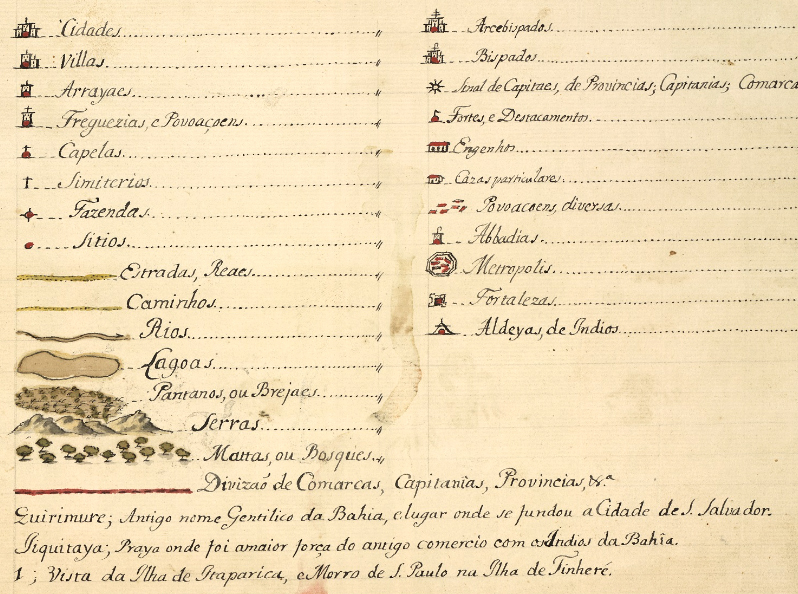 Cidades
Villas
Arrayaes
Freguezias, e Povoaçoens
Capelas
Simiterios
Fazendas
Sitios
Estradas, Reaes
Caminhos
Rios
Lagoas
Pantanos, ou Brejaes
Serras
Mattas, ou Bosques
Arcebispados
Bispados
Sinal de Capitaes, de Provincias; Capitanias; Comarca
Fortes, e Destacamentos
Engenhos
Cazas particulares
Povoacoens, diversas
Abbadias
Metropolis
Fortalezas
Aldeyas, de Indios
Divizaõ de Comarcas, Capitanias, Provincias, &.ª
Quirimure; Antigo nome Gentilico da Bahia, e lugar onde se fundou a Cidade de S. Salvador.
Jiquitaya; Praya onde foi amaior força do antigo comercio com os Indios da Bahîa.
1 ; Vista da Ilha de Itaparica, e Morro de S. Paulo na Ilha de Tinheré.